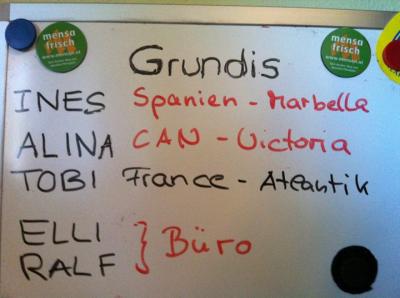 mensa
frisch
www.mensen.at
mensa
frisch
www.mensen.at
Grundis
INES Spanien - Marbella
ALINA CAN - Victoria
TOBI France - Atlantik
ELLI
RALF } Büro